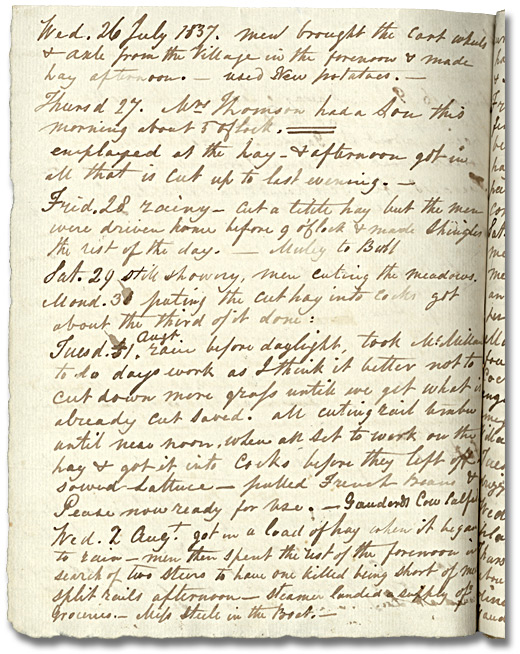 Wed. 26 July 1837. men brought the cart wheels
& axle from the Village in the forenoon & made
hay afternoon. — used New potatoes. —
Thursd 27. Mrs Thomson had a Son this
morning about 5 oClock.
employed at the hay — & afternoon got in
all that is cut up to last evening. —
Frid. 28 rainy — cut a little hay but the men
were driven home before 9 oClock & made Shingles
the rest of the day. — Muly to Bull
Sat. 29 still showery, men cuting the meadows.
Mond. 31 puting the cut hay into cocks got
about the third of it done:
Tuesd. 1 Augt. rain before daylight, took McMillan
to do days work as I think it better not to
cut down more grass until we get what is
already cut saved. all cuting rail timber
until near noon, when all set to work on the
hay & got it into Cocks before they left off
sowed Lattuce — pulled French Beans &
Pease now ready for Use. — Cow Calfed
Wed. 2 Augt. got in a load of hay when it began
to rain — men then spent the rest of the forenoon in
search of two steers to have one killed being short of
split rails afternoon — steamer landed a supply of
Groceries. — Miss Steele in the Boat. —